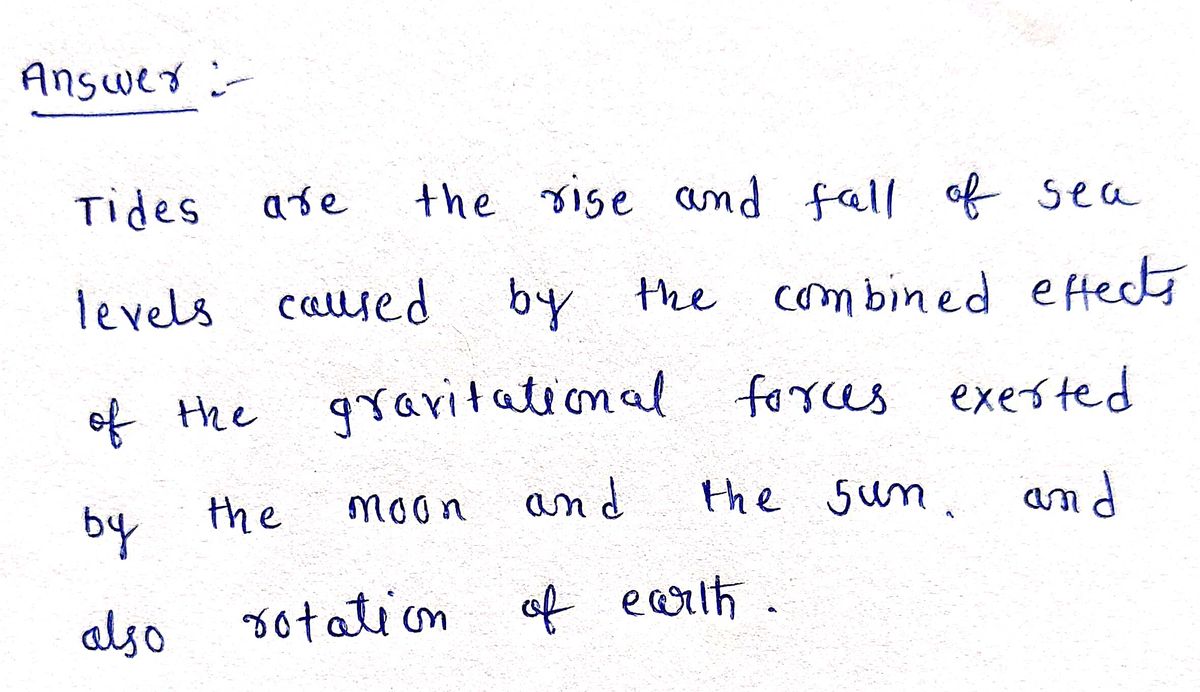 Answer :-
Tides are the rise and fall of sea
levels caused by the combined effects
of the gravitational forces exerted
by the moon and the sun. and
also rotation of earth.